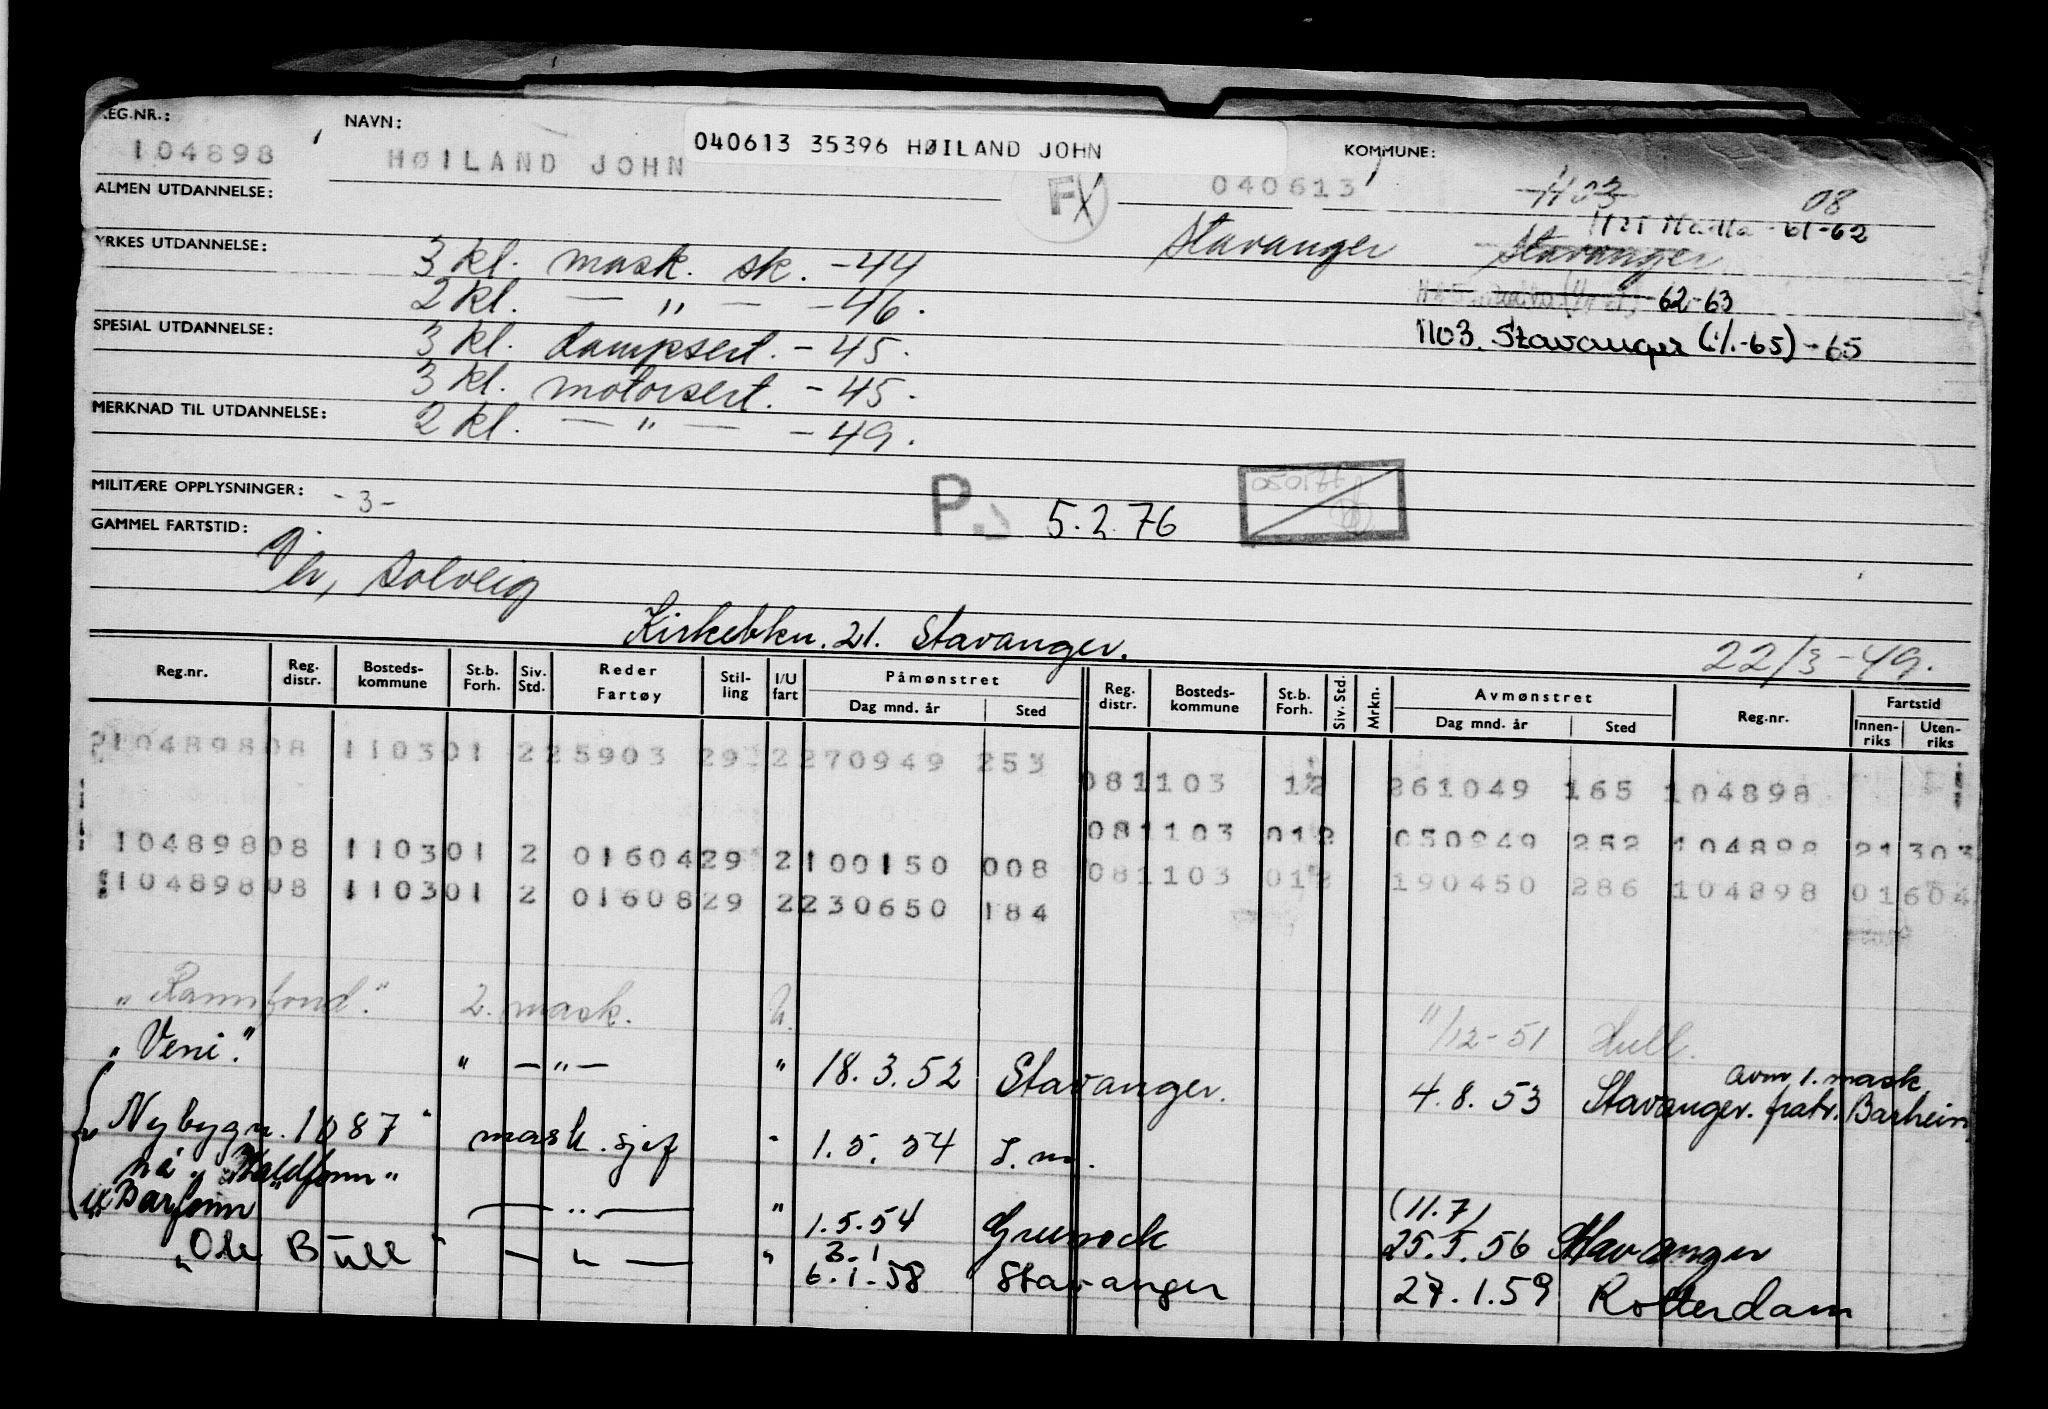 REG.NR.: NAVN: KOMMUNE:
104898 HØILAND JOHN 040613 35396 HØILAND JOHN 040613
ALMEN UTDANNELSE: F 1103 08
1121 Madla -61-62
YRKES UTDANNELSE: 3 kl. mask. sk. -44 Stavanger Stavanger
2 kl. — " — -46. 62-63
SPESIAL UTDANNELSE: 3 kl. dampsert. - 45. 1103. Stavanger (1/1-65) -65
3 kl. motorsert. - 45.
MERKNAD TIL UTDANNELSE: 2 kl. — " — - 49.
MILITÆRE OPPLYSNINGER: -3- P. 5.2.76 771050
GAMMEL FARTSTID:
Solveig
Kirkebkn. 21. Stavanger. 22/3-49.
Reg.nr. Reg. distr. Bosteds-kommune St.b. Forh. Siv. Std. Reder Fartøy Stil-ling I/U fart Påmønstret Dag mnd. år Sted Reg. distr. Bosteds-kommune St.b. Forh. Siv. Std. Mrkn. Avmønstret Dag mnd. år Sted Reg.nr. Fartstid Innen-riks Uten-riks
10489808 110301 2 25903 29 2 270949 253
081103 12 261049 165 104898
081103 012 050949 252 104898 21303
10489808 110301 2 0160429 2100150 008
081103 012 190450 286 104898 01604
10489808 110301 2 0160829 2230650 184
"Ramfond." 2. mask. U. 11/12-51 Hull.
"Veni." " — " — " 18.3.52 Stavanger. 4.8.53 Stavanger. fratr. Barheim
avm. 1. mask
"Nybygn. 1087" mask.sjef " 1.5.54 S.m.
nå "Haldfonn"
ex Barfonn — " — " 1.5.54 Greenock (11.7) 25.5.56 Stavanger
"Ole Bull" — " — " 3.1
6.1.58 Stavanger 27.1.59 Rotterdam